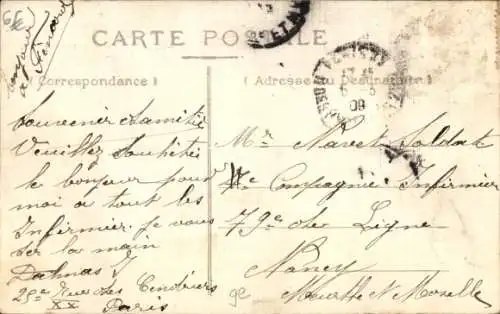 bonjour
à Piénard
CARTE POSTALE
(Correspondance)
(Adresse du Destinataire)
Souvenir d'amitié
Veuillez souhaiter
le bonjour pour
moi a tout les
Infirmier. je vous
ser la main
Dalmas J
25e Rue des Cendriers
XX Paris
Mr Navet Soldat
Compagnie Infirmier
79e de Ligne
Nancy
Meurthe et Moselle